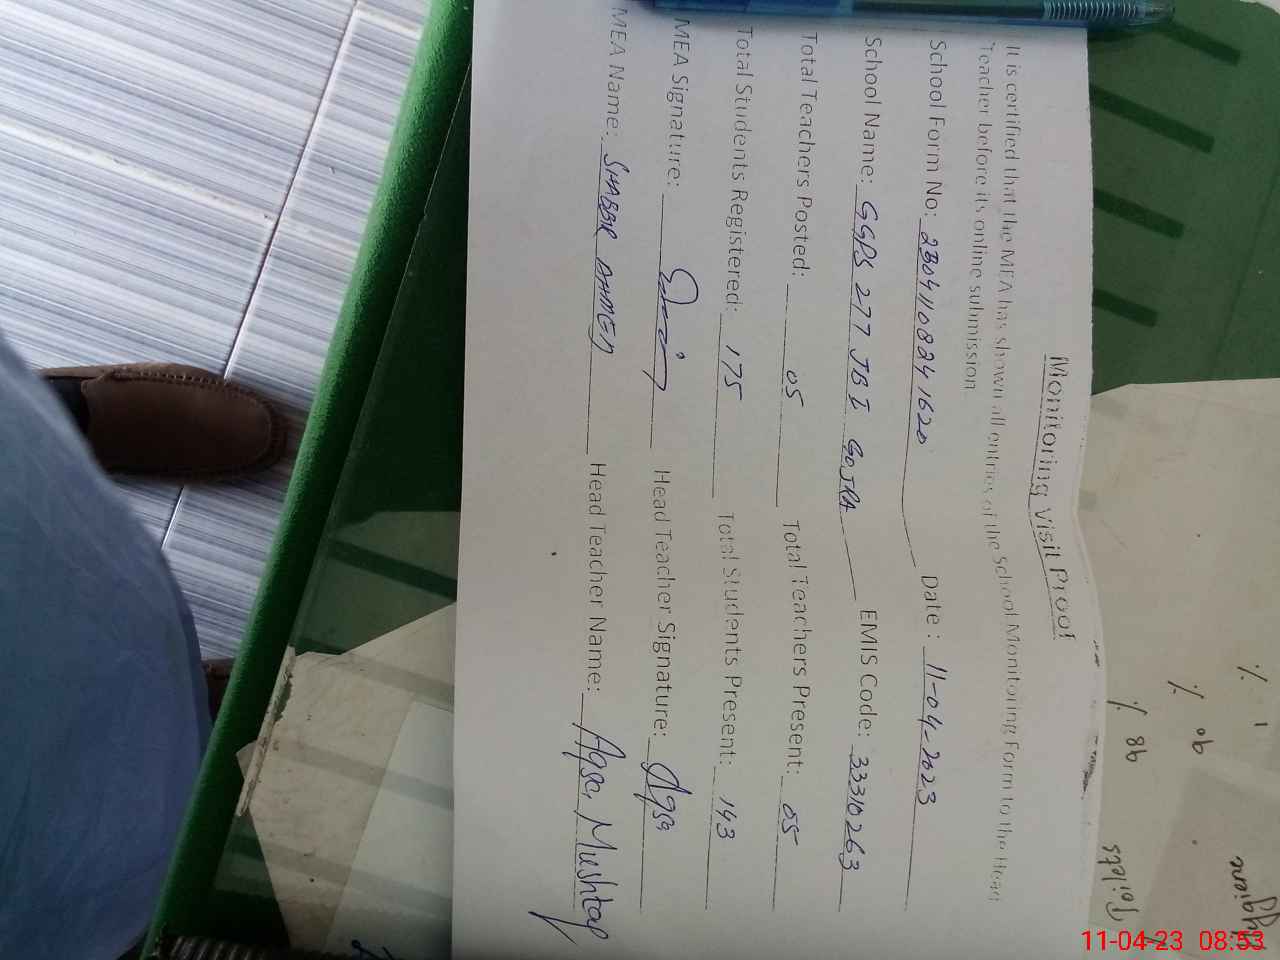 Monitoring Visit Proof
It is certified that the MEA has shown all entries of the School Monitoring Form to the Head
Teacher before its online submission.
School Form No: 230411088241620 Date : 11-04-2023
School Name: GGPS 277 JB I GOJRA EMIS Code: 33310263
Total Teachers Posted: 05 Total Teachers Present: 05
Total Students Registered: 175 Total Students Present: 143
MEA Signature: Head Teacher Signature: Aqsa
MEA Name: SHABBIR AHMED Head Teacher Name: Aqsa Mushtaq
Hygiene 1 %
90 %
Toilets 98 %
11-04-23 08:53